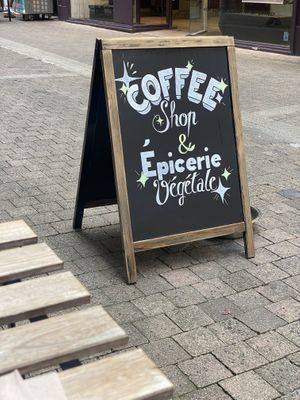 COFFEE
Shop
&
Épicerie
Végétale